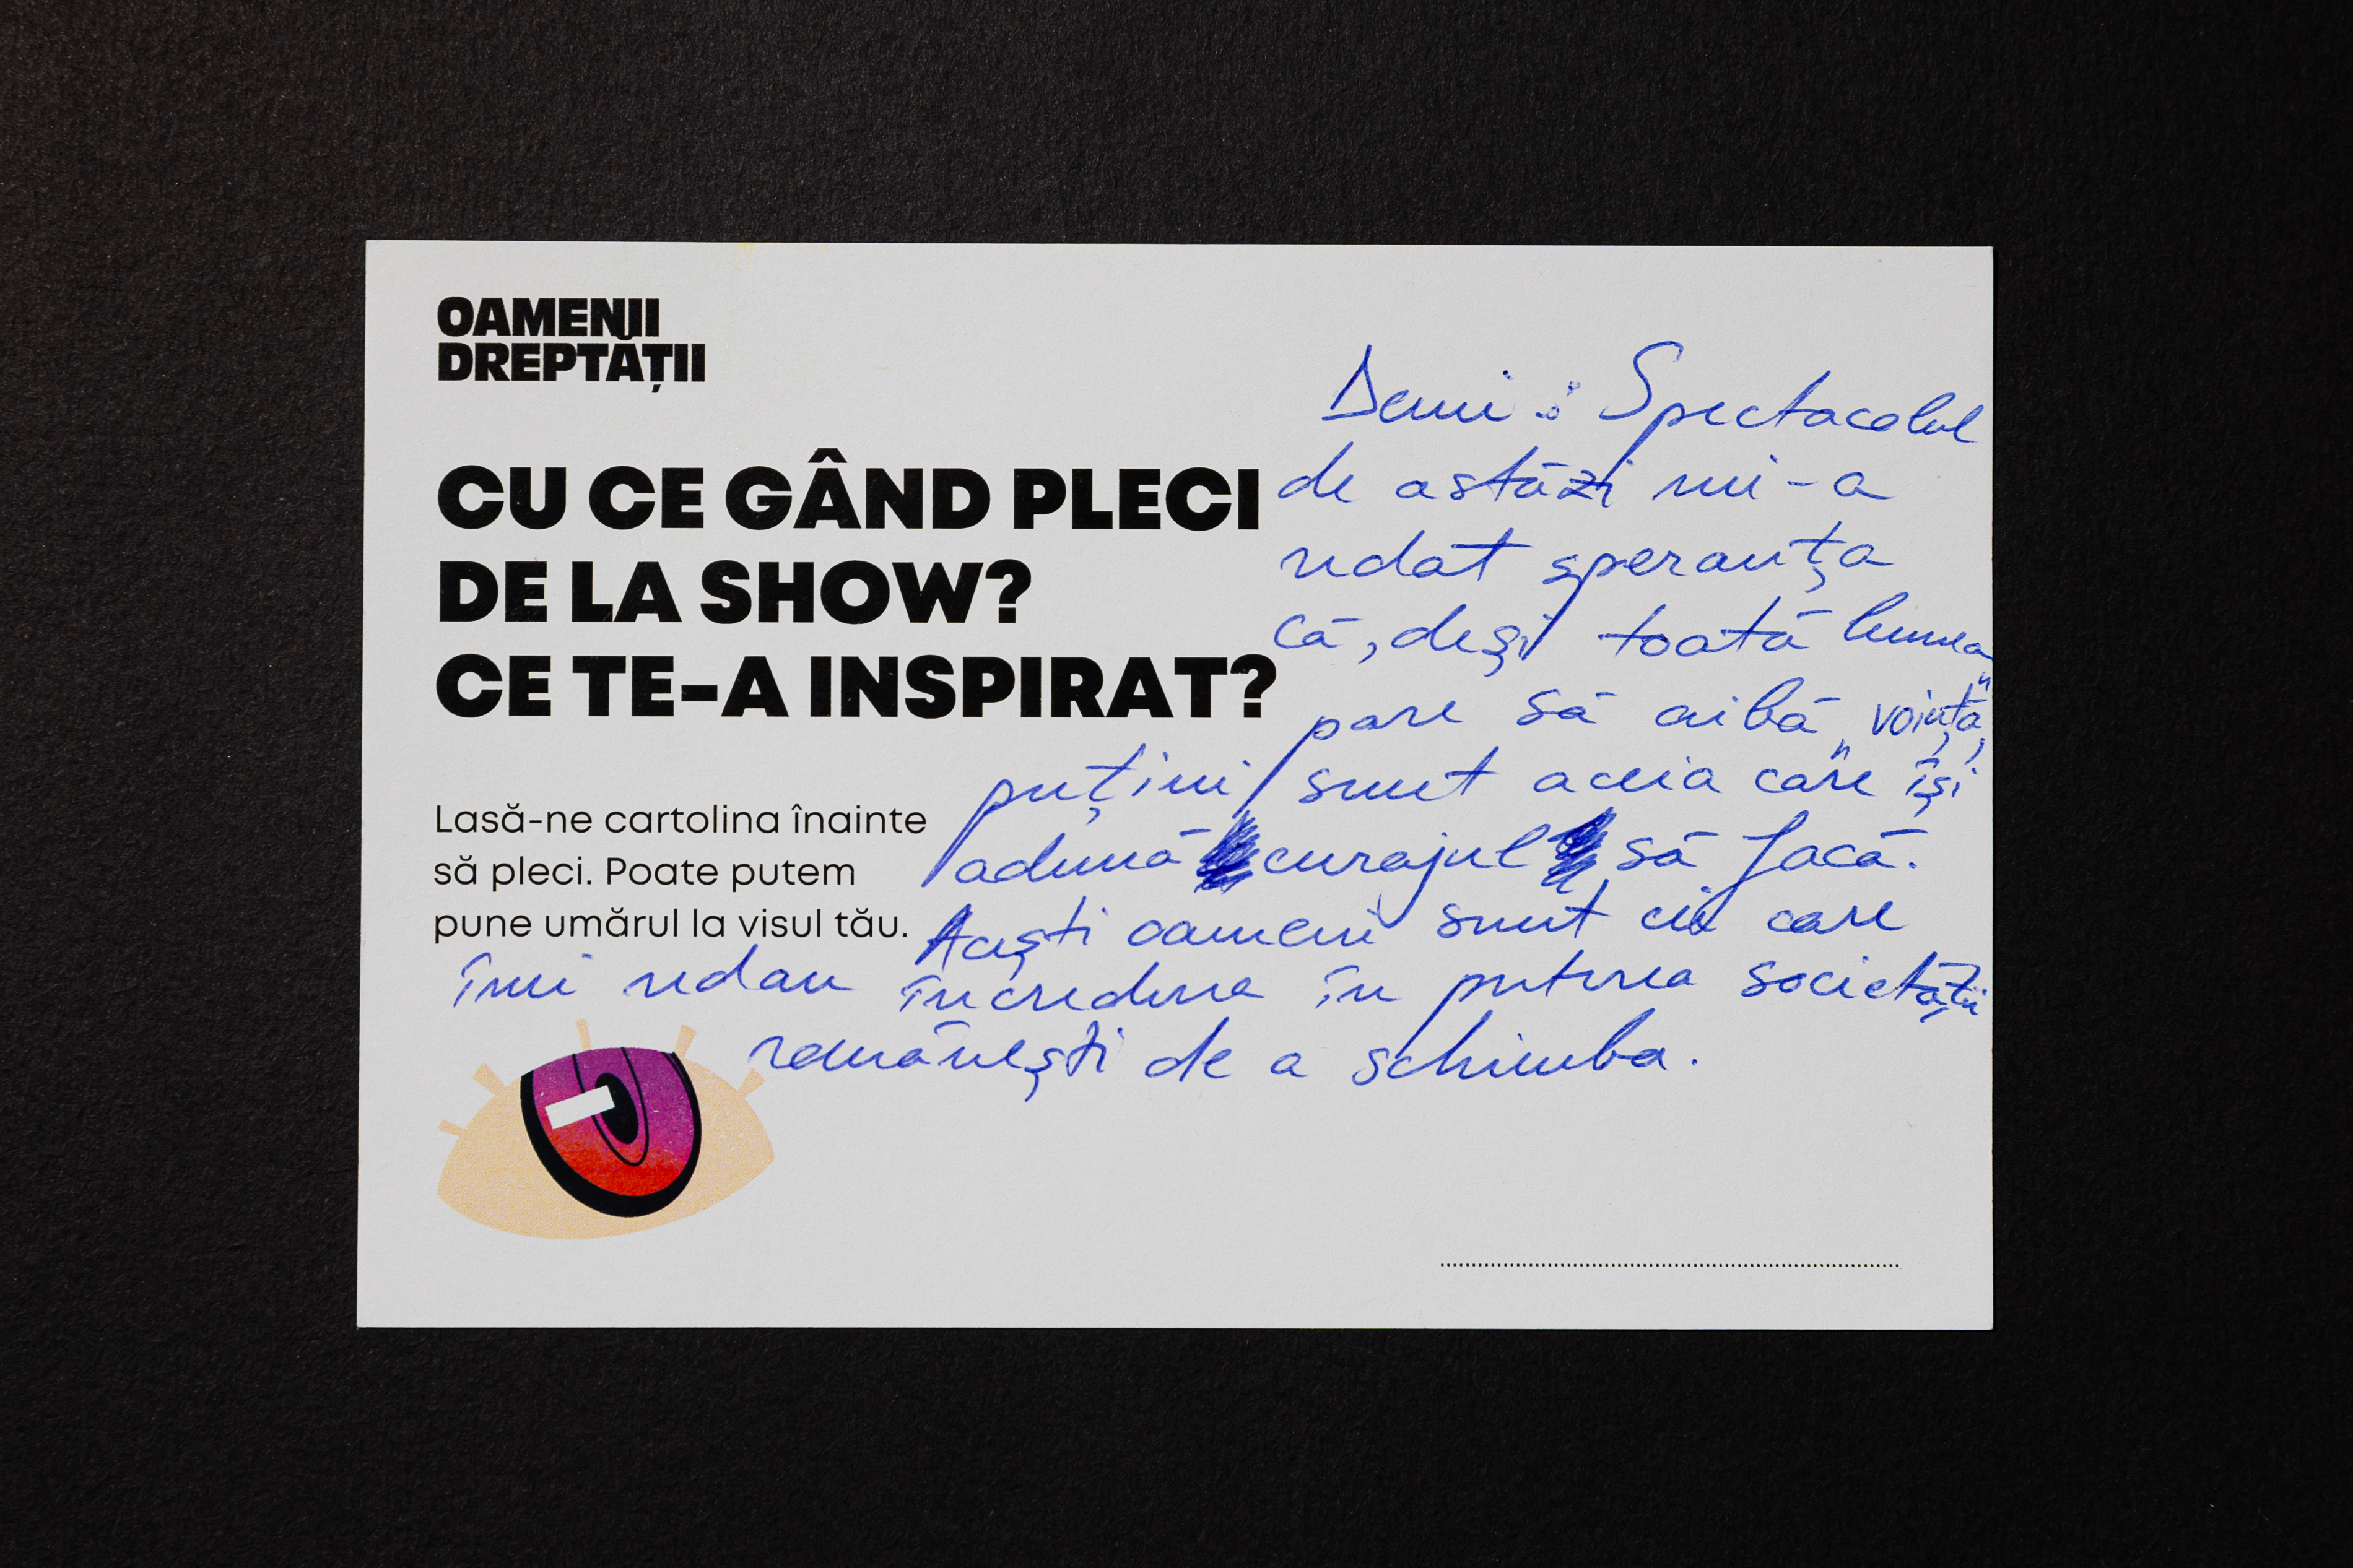 OAMENII
DREPTĂȚII
CU CE GÂND PLECI
DE LA SHOW?
CE TE-A INSPIRAT?
Lasă-ne cartolina înainte
să pleci. Poate putem
pune umărul la visul tău.
Demi: Spectacolul
de astăzi mi-a
redat speranța
că, deși toată lumea
pare să aibă „voință”,
puțini sunt aceia care își
adună curajul să facă.
Acești oameni sunt cei care
îmi redau încrederea în puterea societății
românești de a schimba.